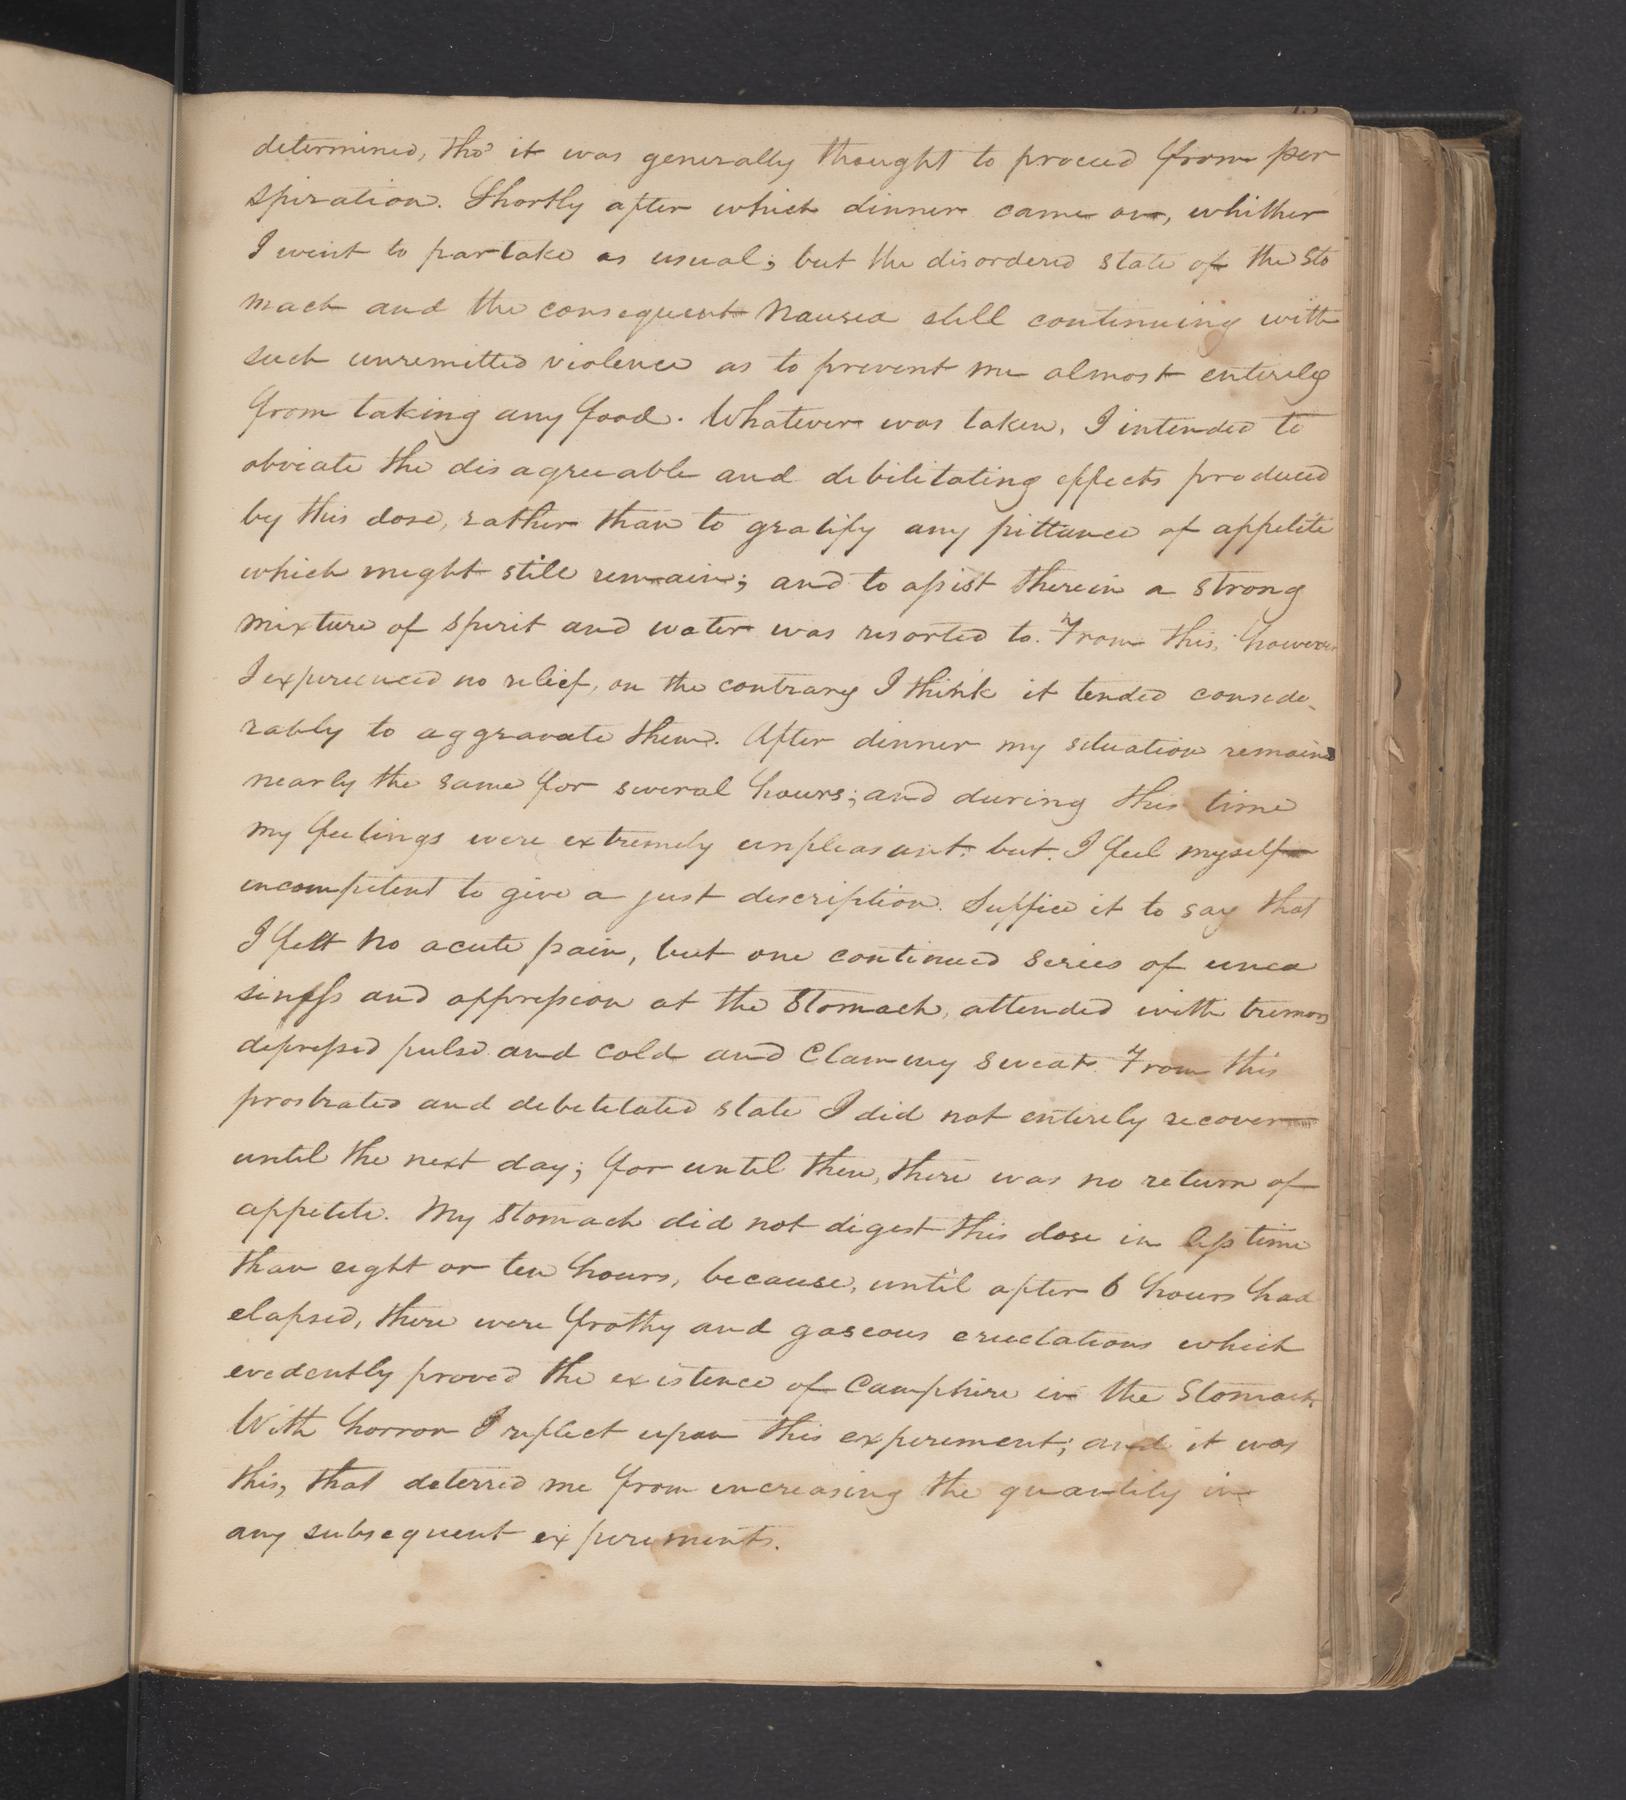 determined, tho' it was generally thought to proceed from per
spiration. Shortly after which dinner came on, whither
I went to partake as usual; but the disordered state of the sto
mach and the consequent Nausea still continuing with
such unremitted violence as to prevent me almost entirely
from taking any food. Whatever was taken, I intended to
obviate the disagreeable and debilitating effects produced
by this dose, rather than to gratify any pittance of appetite
which might still remain; and to assist therein a strong
mixture of spirit and water was resorted to. From this, however
I expereenced no relief, on the contrary I think it tended conside-
rably to aggravate them. After dinner my situation remained
nearly the same for several hours; and during this time
my feelings were extremely unpleasant. but. I feel myself
incompetent to give a just description. Suffice it to say that
I felt no acute pain, but one continued series of unea
siness and oppression at the Stomach, attended with tremors
depressed pulse and cold and Clammy sweats. From this
prostrated and debilitated state I did not entirely recover
until the next day; for until then, there was no return of
appetite. My stomach did not digest this dose in less time
than eight or ten hours, because, until after 6 hours had
elapsed, there were frothy and gaseous eructations which
evedently proved the existence of Camphire in the Stomach
With horror I reflect upon this experiment; and it was
this, that deterred me from encreasing the quantity in
any subsequent experiments.